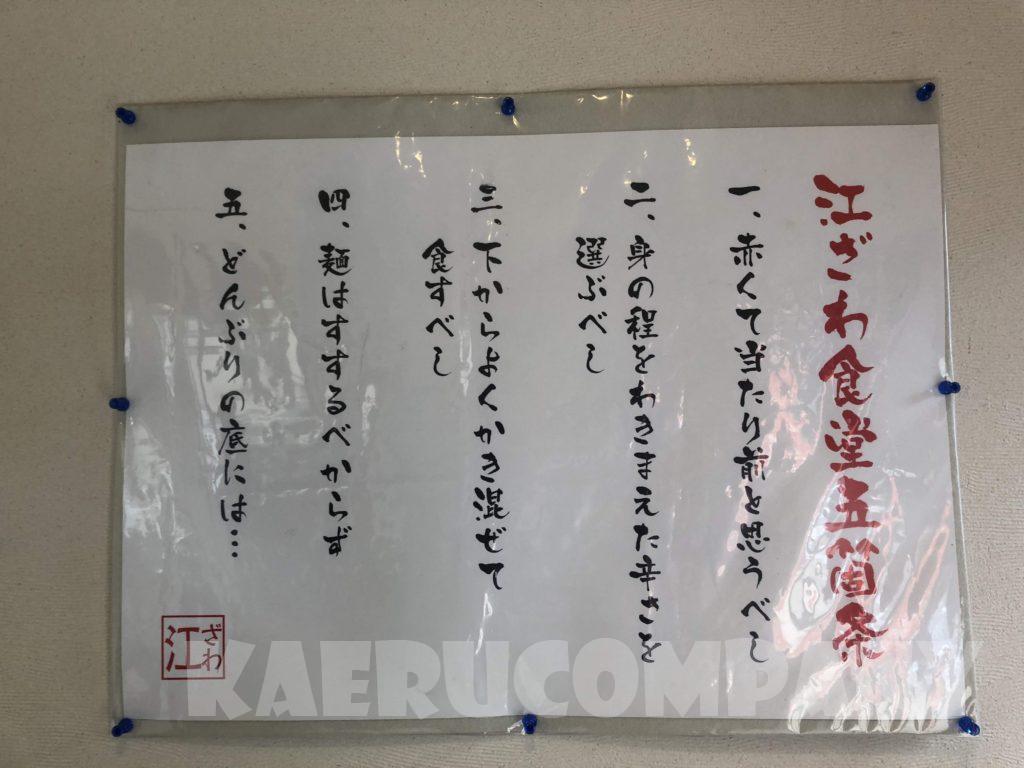 江ざわ食堂五箇条
一、赤くて当たり前と思うべし
二、身の程をわきまえた辛さを
選ぶべし
三、下からよくかき混ぜて
食すべし
四、麺はすするべからず
五、どんぶりの底には…
江ざわ
KAERUCOMPANY